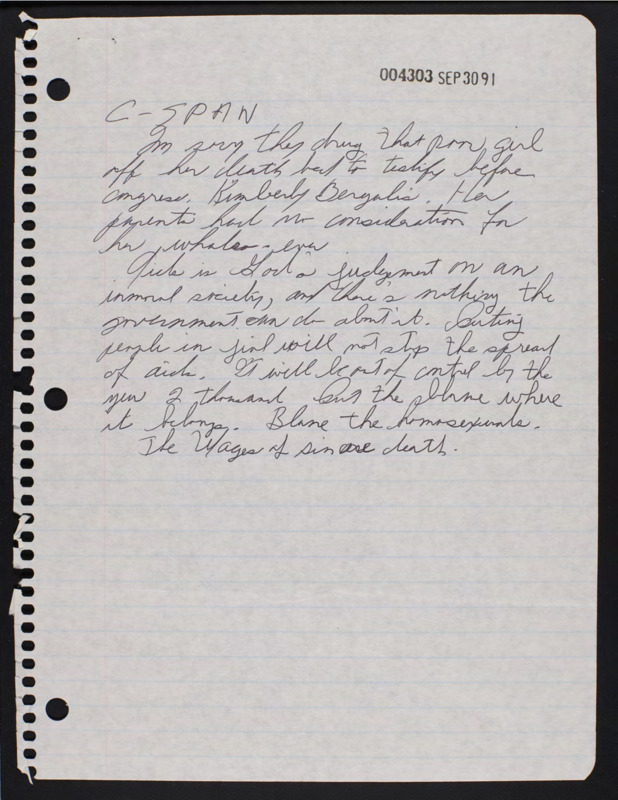 004303 SEP 30 91
C-SPAN
Im sorry they drug that poor girl
off her death bed to testify before
congress. Kimberly Bergalis. Her
parents had no consideration for
her whatso-ever
Aids is God's judgement on an
immoral society, and there's nothing the
government can do about it. Putting
people in jail will not stop the spread
of aids. It will be out of control by the
year 2 thousand but the blame where
it belongs. Blame the homosexuals.
The Wages of sin are death.